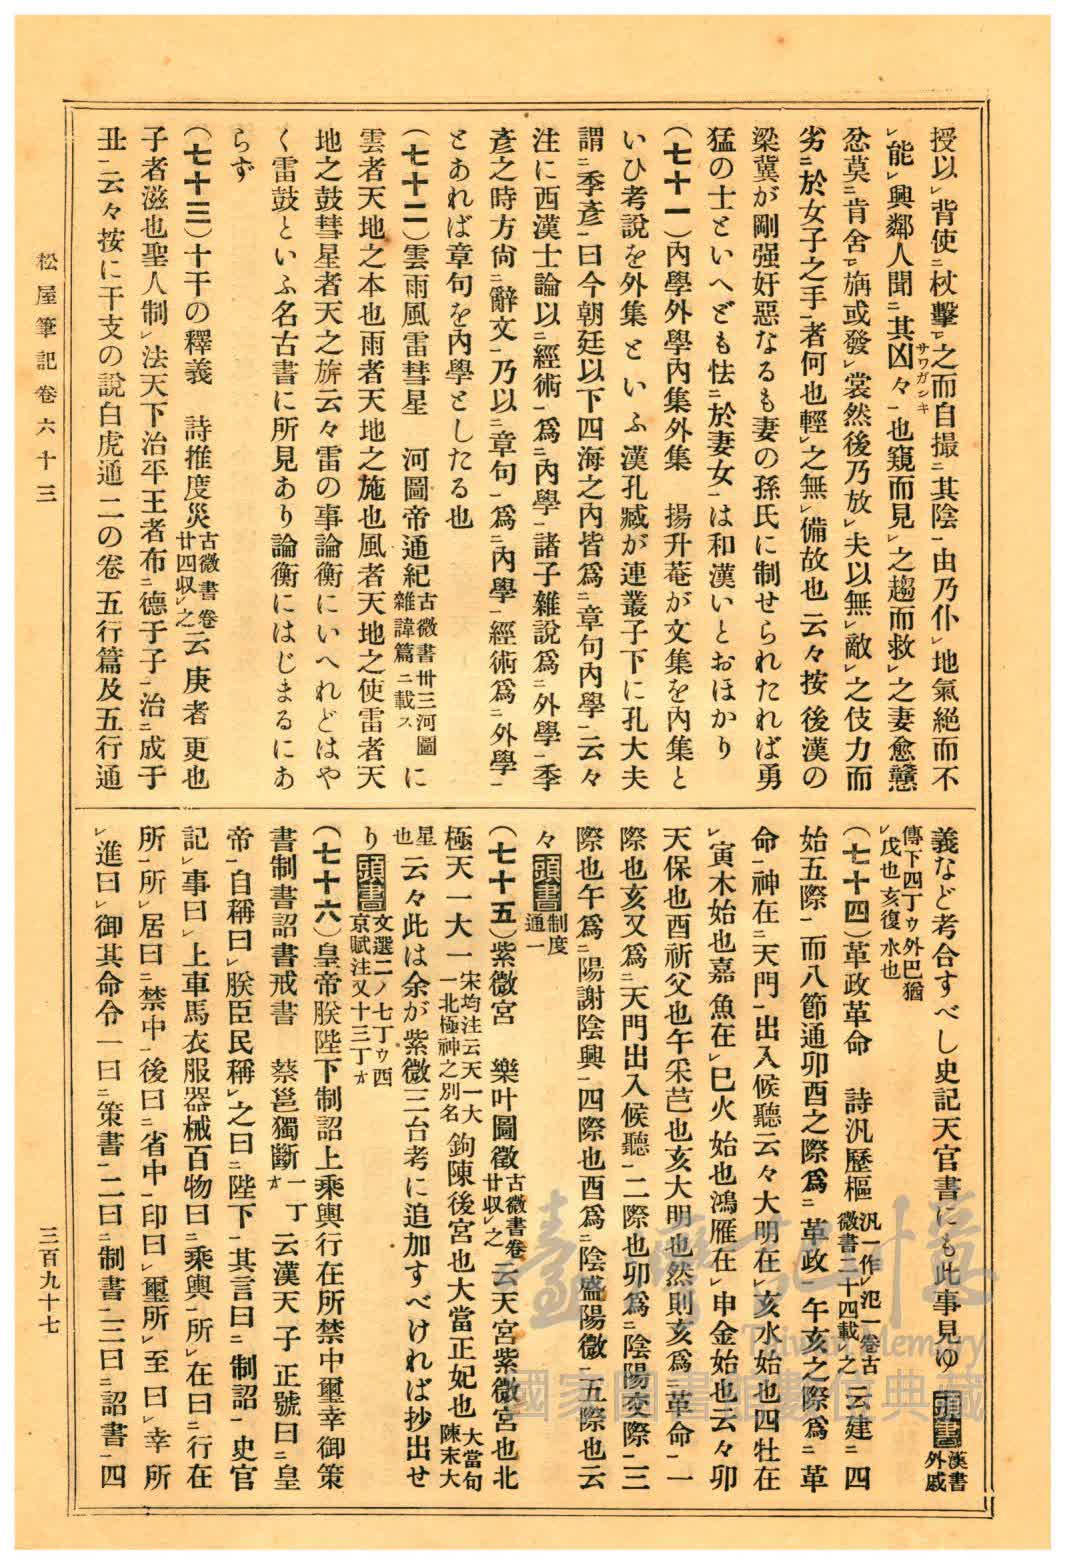 授以㆑背使㆓杖擊㆒之而自撮㆓其陰㆒由乃仆㆑地氣絕而不
㆑能㆑興鄰人聞㆓其凶々㆒也窺而見㆑之趨而救㆑之妻愈戇
忿莫㆓肯舍㆒旃或發㆑裳然後乃放㆑夫以無㆑敵㆑之伎力而
劣㆓於女子之手㆒者何也輕㆑之無㆑備故也云々按後漢の
梁冀が剛强奸惡なるも妻の孫氏に制せられたれば勇
猛の士といへども怯㆓於妻女㆒は和漢いとおほかり
（七十一）內學外學內集外集　揚升菴が文集を內集と
いひ考說を外集といふ漢孔臧が連叢子下に孔大夫
謂㆓季彥㆒曰今朝廷以下四海之內皆爲㆓章句內學㆒云々
注に西漢士論以㆓經術㆒爲㆓內學㆒諸子雜說爲㆓外學㆒季
彥之時方尙㆓辭文㆒乃以㆓章句㆒爲㆓內學㆒經術爲㆓外學㆒
とあれば章句を內學としたる也
（七十二）雲雨風雷彗星　河圖帝通紀古微書卅三河圖雜諱篇ニ載ス に
雲者天地之本也雨者天地之施也風者天地之使雷者天
地之鼓彗星者天之旂云々雷の事論衡にいへれどはや
く雷鼓といふ名古書に所見あり論衡にはじまるにあ
らず
（七十三）十干の釋義　詩推度災古微書卷廿四収㆑之云庚者更也
子者滋也聖人制㆑法天下治平王者布㆓德于子㆒治㆓成于
丑㆒云々按に干支の說白虎通二の卷五行篇及五行通
義など考合すべし史記天官書にも此事見ゆ 頭書 漢書外戚
傳下四丁ウ外巴猶㆑戊也亥復水也
（七十四）革政革命　詩汎歷樞汎一作㆑氾一卷古微書二十四載㆑之 云建㆓四
始五際㆒而八節通卯酉之際爲㆓革政㆒午亥之際爲㆓革
命㆒神在㆓天門㆒出入候聽云々大明在㆑亥水始也四牡在
㆑寅木始也嘉魚在㆑巳火始也鴻雁在㆑申金始也云々卯
天保也酉祈父也午采芑也亥大明也然則亥爲㆓革命㆒一
際也亥又爲㆓天門出入候聽㆒二際也卯爲㆓陰陽交際㆒三
際也午爲㆓陽謝陰興㆒四際也酉爲㆓陰盛陽微㆒五際也云
々 頭書 制度通一
（七十五）紫微宮　樂叶圖徵古微書卷廿収㆑之 云天宮紫微宮也北
極天一大一宋均注云天一大一北極神之別名 鉤陳後宮也大當正妃也大當句陳末大
星也 云々此は余が紫微三台考に追加すべければ抄出せ
り 頭書 文選二ノ七丁ウ西京賦注又十三丁オ
（七十六）皇帝朕陛下制詔上乘輿行在所禁中璽幸御策
書制書詔書戒書　蔡邕獨斷一丁オ 云漢天子正號曰㆓皇
帝㆒自稱曰㆑朕臣民稱㆑之曰㆓陛下㆒其言曰㆓制詔㆒史官
記㆑事曰㆑上車馬衣服器械百物曰㆓乘輿㆒所㆑在曰㆓行在
所㆒所㆑居曰㆓禁中㆒後曰㆓省中㆒印曰㆑璽所㆑至曰㆑幸所
㆑進曰㆑御其命令一曰㆓策書㆒二曰㆓制書㆒三曰㆓詔書㆒四
松屋筆記卷六十三
三百九十七
臺灣記憶
Taiwan Memory
國家圖書館數位典藏